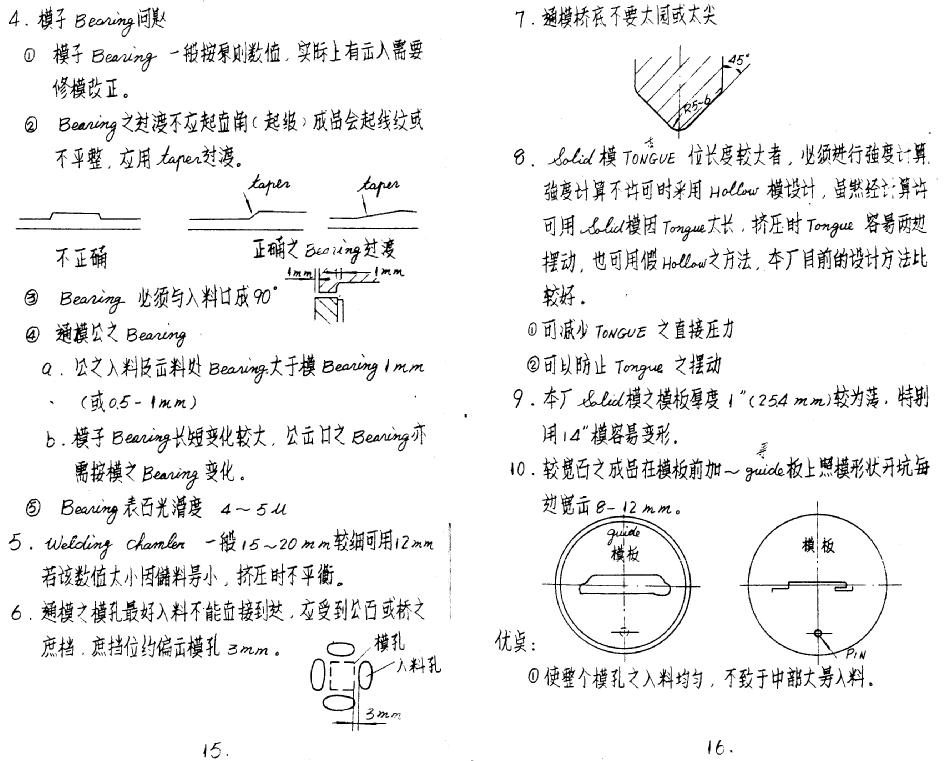 4. 模子 Bearing问题
① 模子 Bearing 一般按原则数值，实际上有出入需要
修模改正。
② Bearing之过渡不应起直角(起级)成品会起线纹或
不平整，应用 taper过渡。
taper
taper
不正确
正确之 Bearing过渡
1mm
1mm
③ Bearing 必须与入料口成90°
④ 通模公之 Bearing
a. 公之入料及出料处 Bearing大于模Bearing 1mm
(或0.5-1mm)
b. 模子 Bearing长短变化较大，公出口之Bearing亦
需按模之Bearing变化。
⑤ Bearing表面光滑度 4~5u
5. Welding chamber 一般15~20mm较细可用12mm
若该数值太小因储料易小，挤压时不平衡。
6. 通模之模孔最好入料不能直接到达，应受到公面或桥之
庶挡，庶挡位约偏出模孔3mm。
模孔
入料孔
3mm
15.
7. 通模桥底不要太园或太尖
45°
R5-6
8. Solid 模 TONGUE 位长度较大者，必须进行強度计算.
強度计算不许可时采用 Hollow 模设计，虽然经计算许
可用 Solid模因Tongue太长，挤压时 Tongue 容易两边
摆动，也可用假Hollow之方法，本厂目前的设计方法比
较好。
①可减少 TONGUE 之直接压力
②可以防止 Tongue 之摆动
9. 本厂 Solid模之模板厚度 1"(25.4mm)较为薄，特别
用14"模容易变形.
10. 较宽面之成品在模板前加~guide板上照模形状开坑每
边宽出 8-12mm。
guide
模板
模板
PIN
优点:
①使整个模孔之入料均匀，不致于中部大易入料。
16.